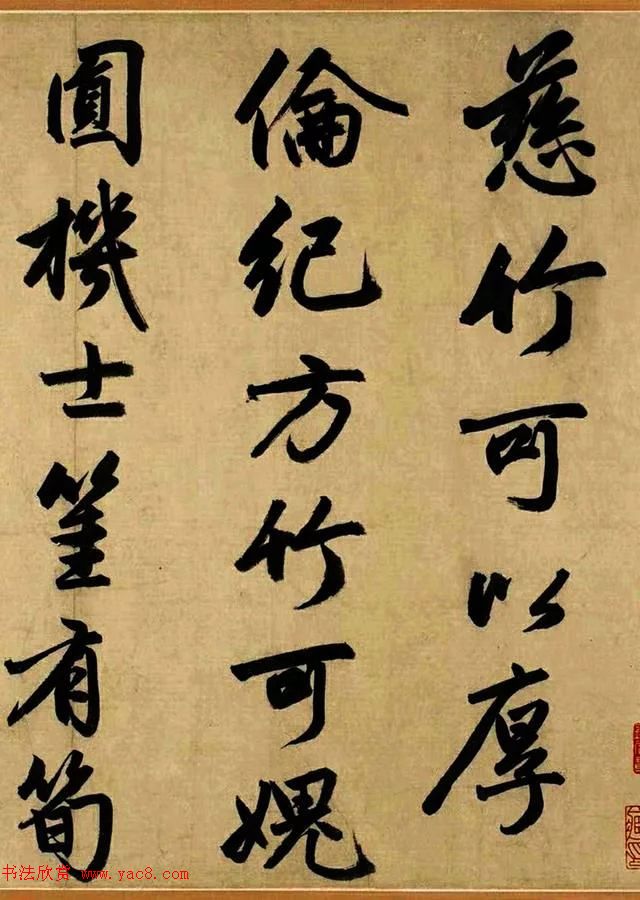 慈竹可以厚
倫紀方竹可媿
圓機士篁有筍
书法欣赏 www.yac8.com